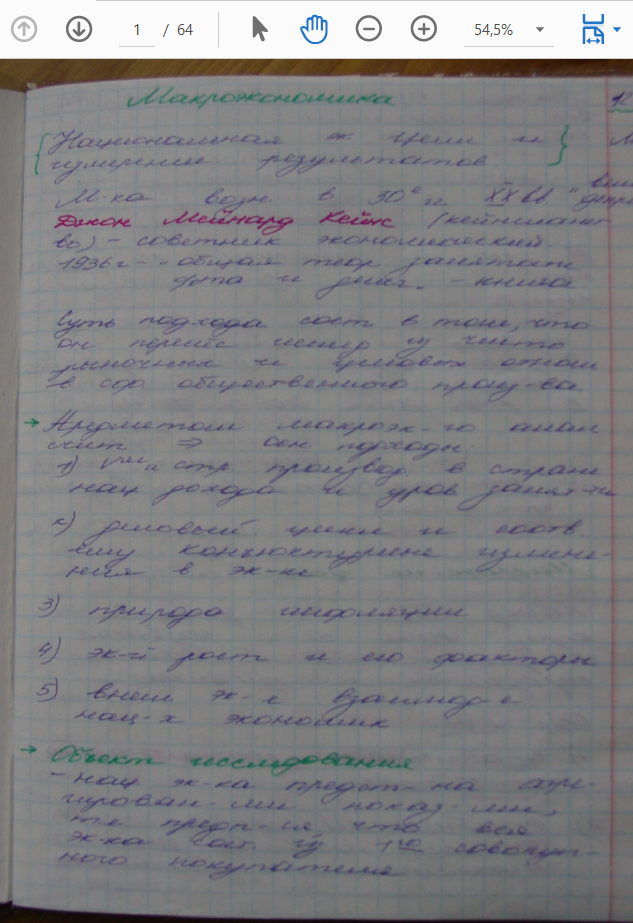 1 / 64
54,5%
Макроэкономика
Национальная эк. цели и
измерение результатов
М-ка возн в 30е гг XX вв
Джон Мейнард Кейнс (кейнсианст
во) - советник экономический.
1936г - "общая теор занятости
%та и денег" - книга
Суть подхода сост в том, что
он перенёс из чисто
рыночных и отнош
в сфр общественного произ-ва
→ Предметом макроэк-го анал
счит ⇒ осн подходы:
1) V и стр производ в стране
нац дохода и уров занят-ти
2) деловый цикл и соотв.
ему конъюктурные измене-
ния в эк-ке
3) природа инфляции
4) эк-й рост и его факторы
5) внеш эк-е взаимод-е
нац-х экономик
→ Объект исследования
- нац эк-ка предст-на агре-
гирован-ми показ-ми,
те предп-ся, что вся
эк-ка сост из 1го совокуп-
ного покупателя